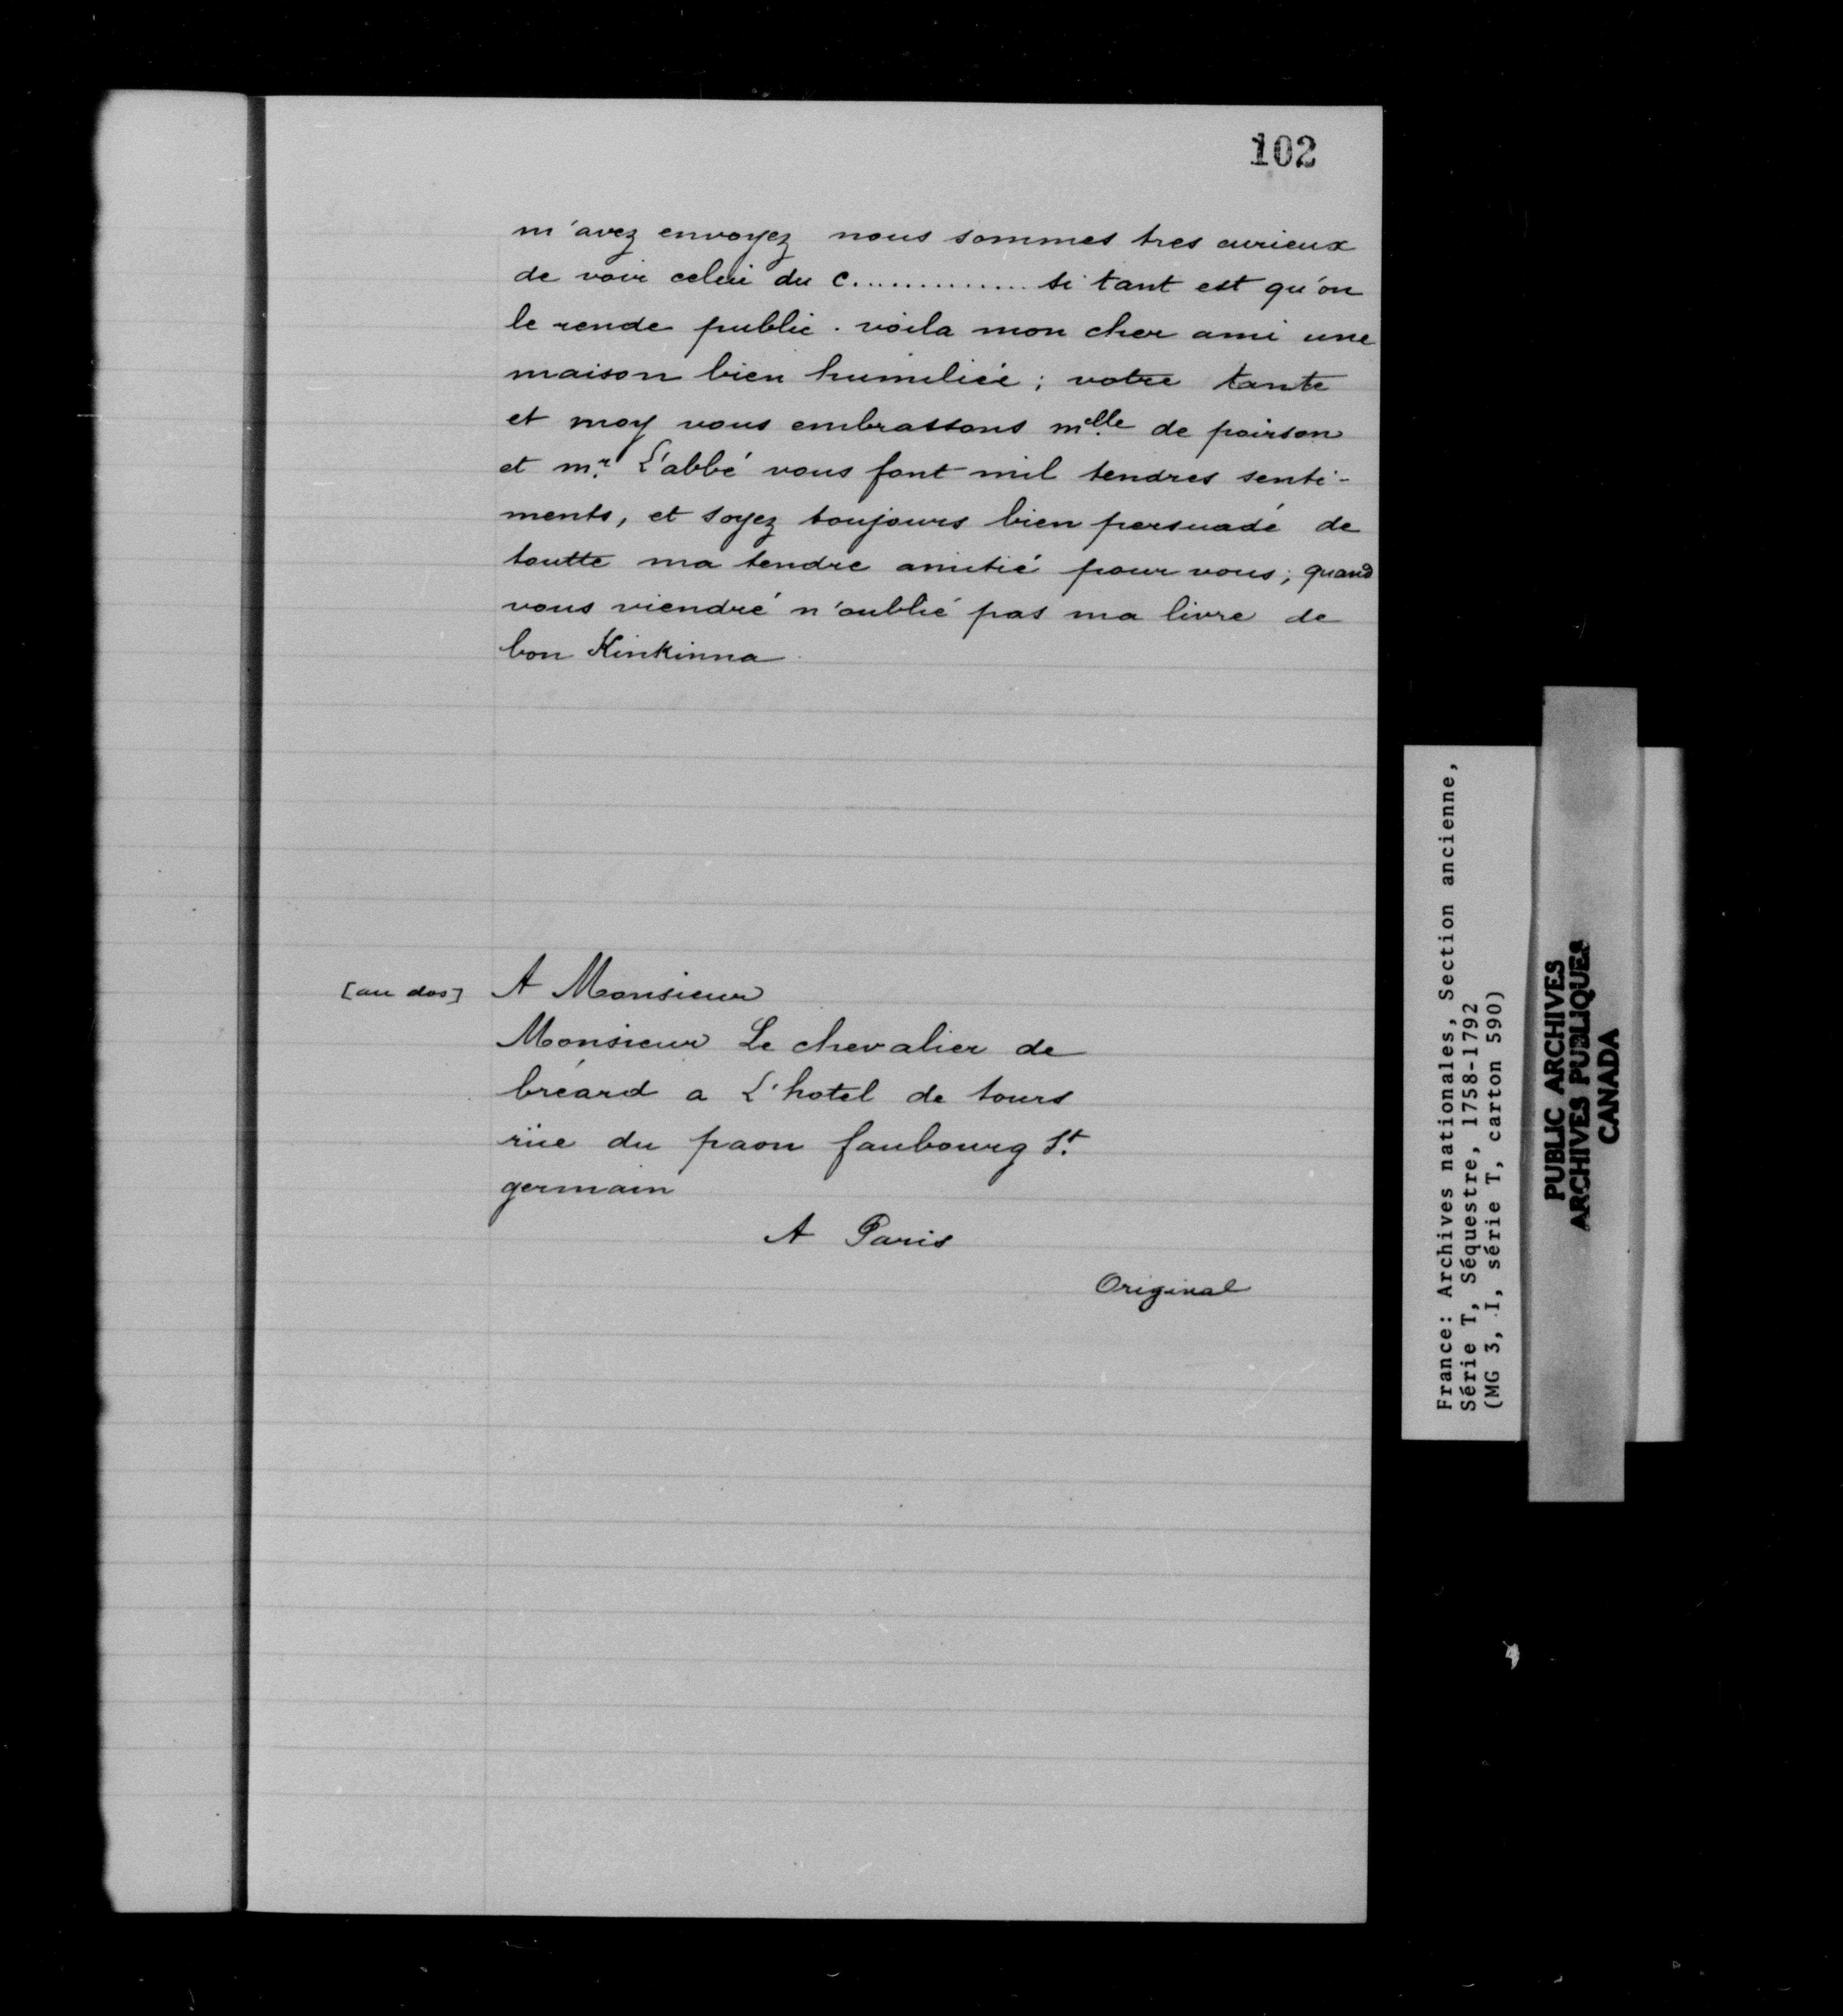 102
m'avez envoyez nous sommes tres curieux
de voir celui du c.............. si tant est qu'on
le rende public. voila mon cher ami une
maison bien humiliée; votre tante
et moy vous embrassons melle de poirson
et mr. L'abbé vous font mil tendres senti-
ments, et soyez toujours bien persuadé de
toutte ma tendre amitié pour vous; quand
vous viendré n'oublié pas ma livre de
bon Kinkinna.
[au dos] A Monsieur
Monsieur Le chevalier de
bréard a L'hotel de tours
rüe du paon faubourg St.
germain
A Paris
Original
France: Archives nationales, Section ancienne,
Série T, Séquestre, 1758-1792
(MG 3, I, série T, carton 590)
PUBLIC ARCHIVES
ARCHIVES PUBLIQUES
CANADA